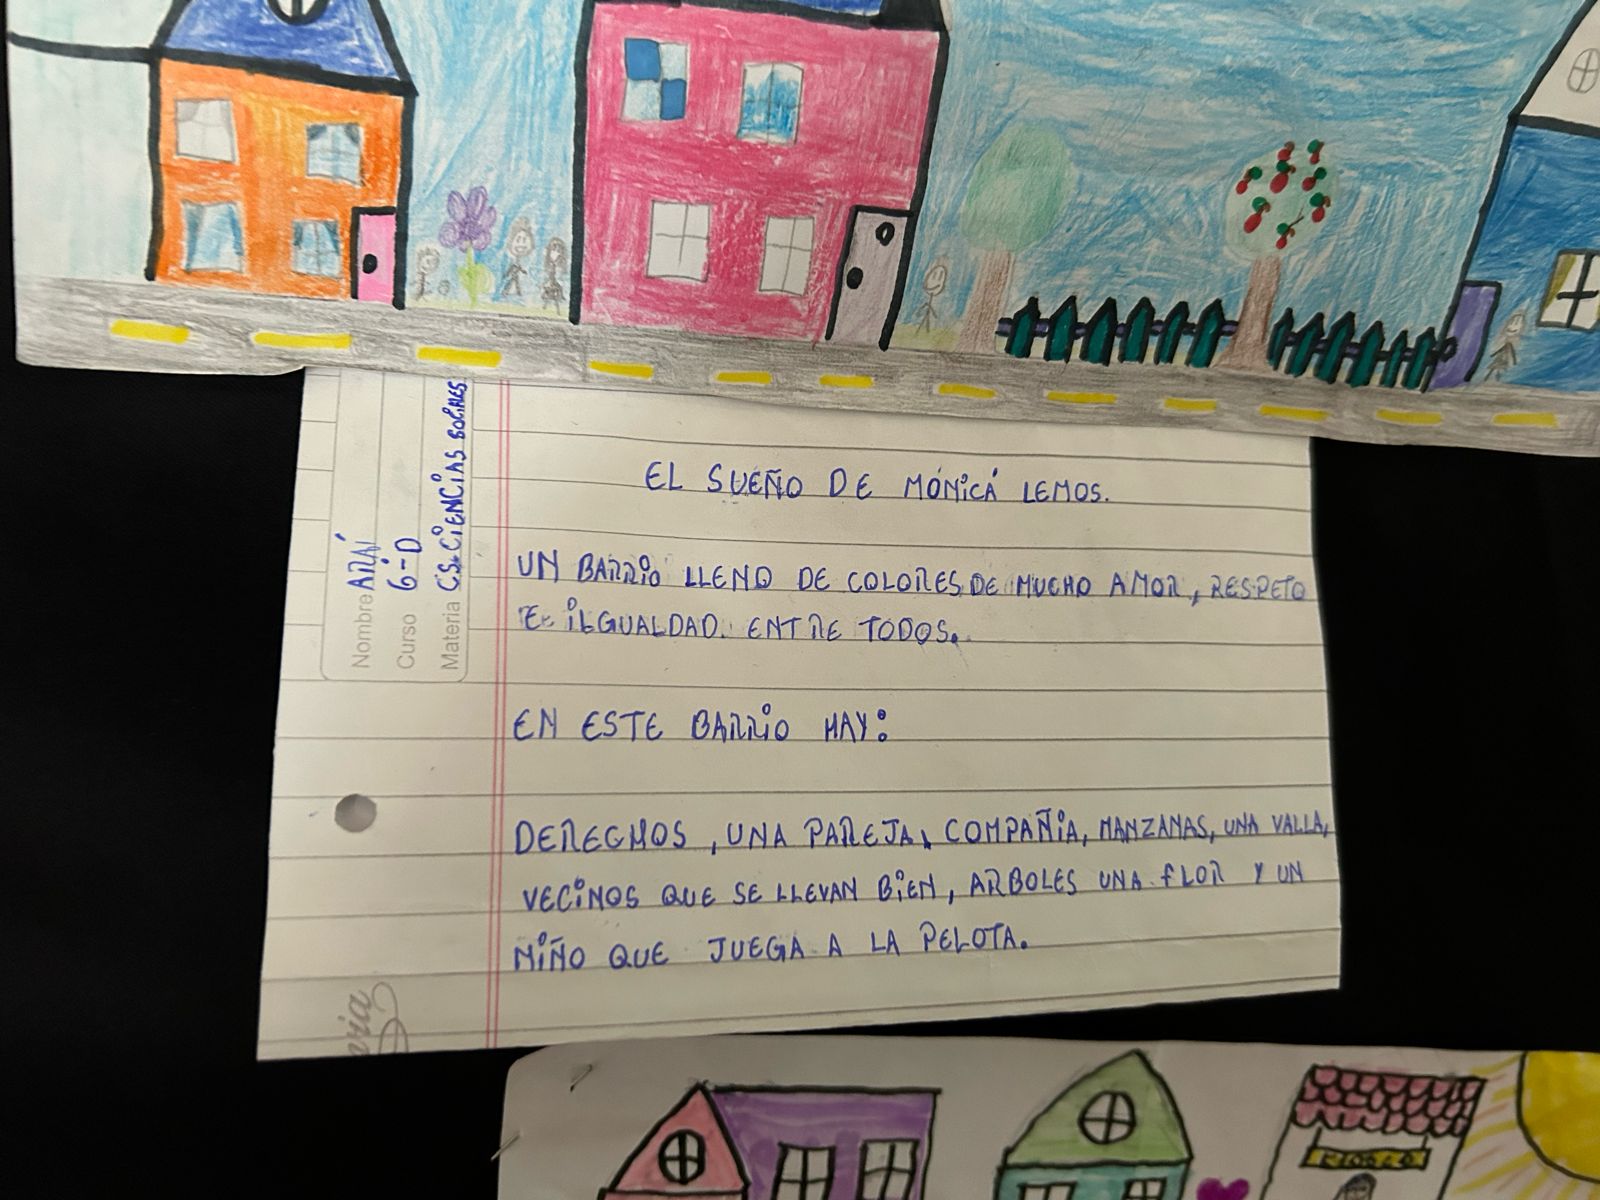 EL SUEÑO DE MÓNICÁ LEMOS.
UN BARRIO LLENO DE COLORES, DE MUCHO AMOR, RESPETO
E ILGUALDAD. ENTRE TODOS.
EN ESTE BARRIO HAY:
DERECHOS, UNA PAREJA, COMPAÑIA, MANZANAS, UNA VALLA,
VECINOS QUE SE LLEVAN BIEN, ARBOLES UNA FLOR Y UN
NIÑO QUE JUEGA A LA PELOTA.
Nombre ARAÍ
Curso 6-D
Materia CS. CIENCIAS SOCIALES
KIOSCO